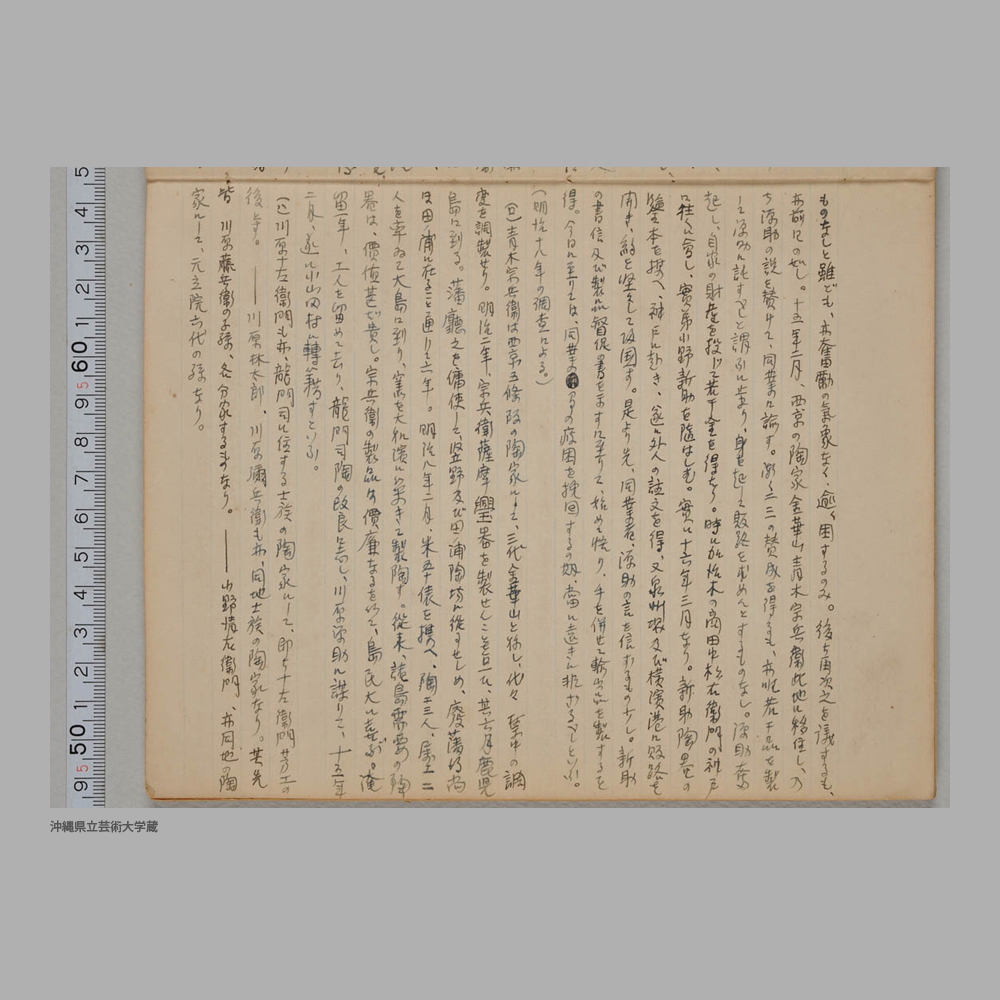 ものなしと雖ども、亦奮勵の氣象なく、逾〻困するのみ。後ち再次之を議するも、
亦前日の如し。十五年二月、西京の陶家金華山青木宗兵衛此地に移住し、乃
ち源助の説を賛けて、同業に諭す。漸く二三の賛成を得るも、亦唯若干品を製
して源助に託すべしと謂ふに至り、身を起して販路を求めんとするものなし。源助奮
起し、自家の財産を投じて若干金を得たり。時に加治木の商田中松右衛門の神戸
に往くに會し、實弟小野新助を隨はしむ。實に十六年三月なり。新助陶器の
本を携へ、神戸に赴き、遂に外人の註文を得、又泉州堺及び横濱港に販路を
開き、約を堅くして歸国す。是より先、同業者、源助の言を信ずるもの少し。新助
の書信及び製品督促の書を示すに至りて、始めて悟り、手を併せて輸出品を製すると
得。今日に至りては、同業の疲困を挽回するの期、當に遠きに非ざるべしといふ。
(明治十八年の調査による。)
(ロ)青木宗兵衛は西京五條阪の陶家にして、三代金華山と称し、代々 禁中の調
度を調製せり。明治二年、宗兵衛薩摩 器を製せんことを思ひ、其六月鹿児
島に到る。藩廳之を傭使して、竪野及び田ノ浦陶坊に從事せしめ、廢藩の後尚
ほ田ノ浦に在ること通じて六年。明治八年二月、米五十俵を携へ、陶工三人、屬工二
人を率ゐて大島に到り、窯を大和濱に築きて製陶す。從来、諸島需要の陶
器は、價値甚だ貴し。宗兵衛の製品は價廉なるを以て、島民大いに喜ぶ。淹
留一年、工人を留めて去り、龍門司陶の改良に志し、川原源助に謀りて、十五年
二月、遂に小山田村に轉籍すといふ。
(ハ)川原十左衛門も亦、龍門司に住する士族の陶家にして、即ち十左衛門芳工の
後なり。——川原林太郎、川原彌兵衛も亦、同地士族の陶家なり。其先
皆 川原藤兵衛の子孫、各分家するものなり。——小野清左衛門、亦同地の陶
家にして、元立院六代の孫なり。
5 4 3 2 1 60 9 8 7 6 5 4 3 2 1 50 9
沖縄県立芸術大学蔵